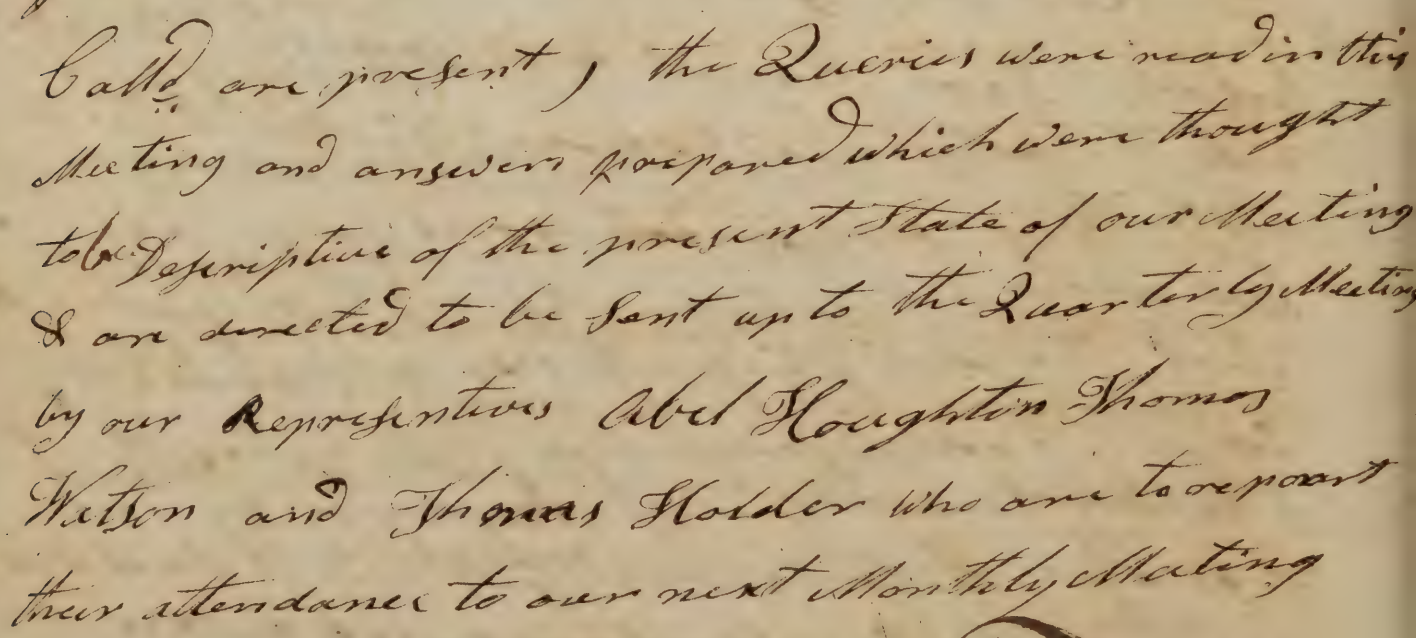 Calld are present, the Queries were read in this
Meeting and answers prepared which were thought
to be Descriptive of the present State of our Meeting
& are derected to be Sent up to the Quarterly Meeting
by our Representives Abel Houghton Thomas
Watson and Thomas Holder who are to repoart
their attendance to our next Monthly Meeting